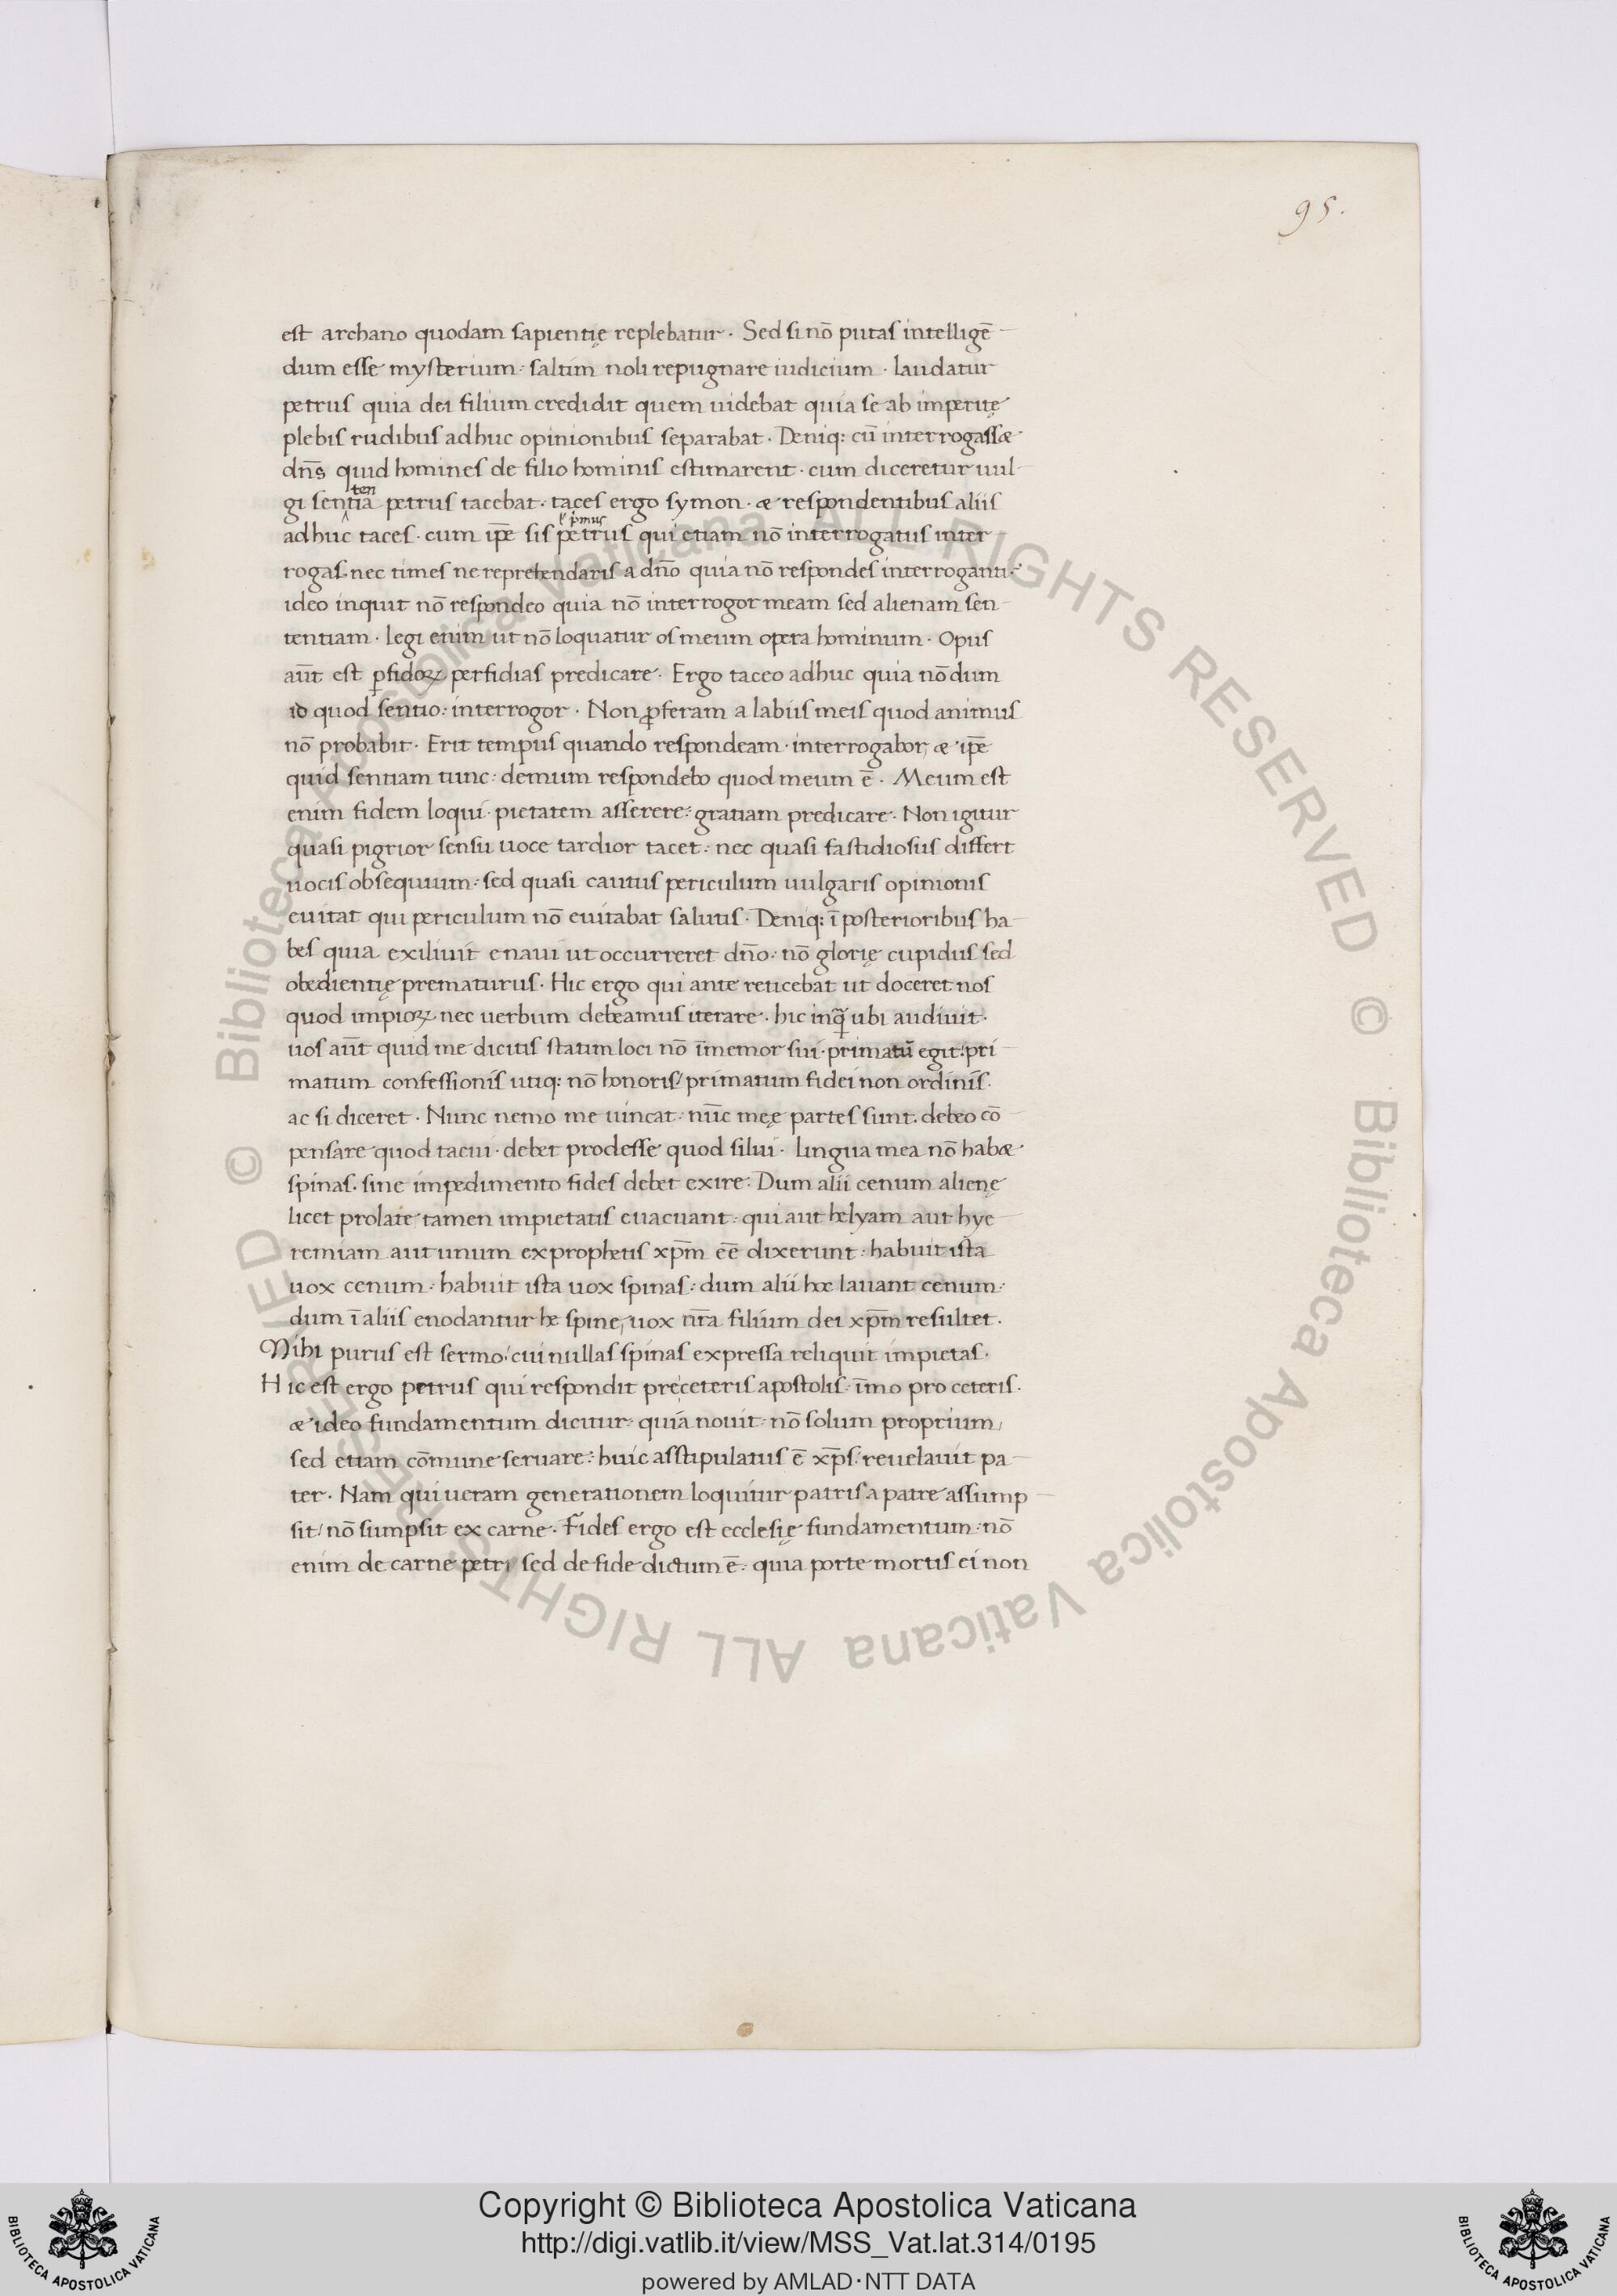 95.
est archano quodam sapientię replebatur · Sed si nō putas intelligē
dum esse mysterium : saltim noli repugnare iudicium · laudatur
petrus quia dei filium credidit quem uidebat quia se ab imperitę
plebis rudibus adhuc opinionibus separabat · Deniq: cū interrogassæ
dn̄s quid homines de filio hominis estimarent · cum diceretur uul-
ten
gi sentia petrus tacebat · taces ergo symon · æ respondentibus aliis
adhuc taces · cum ip̄e sis petrus qui etiam nō interrogatus inter
rogas · nec times ne reprehendaris a dn̄o quia nō respondes interroganti :
ideo inquit nō respondeo quia nō interrogor meam sed alienam sen
tentiam · legi enim ut nō loquatur os meum opera hominum · Opus
aūt est ꝑfidoꝝ perfidias predicare · Ergo taceo adhuc quia nōdum
id quod sentio : interrogor · Non ꝓferam a labiis meis quod animus
nō probabit · Erit tempus quando respondeam · interrogabor, æ ip̄e
quid sentiam tunc : demum respondebo quod meum ē · Meum est
enim fidem loqui · pietatem asserere : gratiam predicare · Non igitur
quasi pigrior sensu uoce tardior tacet : nec quasi fastidiosus differt
uocis obsequium : sed quasi cautus periculum uulgaris opinionis
euitat qui periculum nō euitabat salutis · Deniq: ī posterioribus ha
bes quia exiliuit e naui ut occurreret dn̄o : nō glorię cupidus sed
obedientię prematurus · Hic ergo qui ante reticebat ut doceret nos
quod impioꝝ nec uerbum debeamus iterare · hic inq̄ ubi audiuit ·
uos aūt quid me dicitis statim loci nō īmemor sui · primatū egit : pri
matum confessionis utiq: nō honoris / primatum fidei non ordinis ·
ac si diceret · Nunc nemo me uincat : nūc meę partes sunt · debeo cō
pensare quod tacui · debet prodesse quod silui · lingua mea nō habæ
spinas · sine impedimento fides debet exire : Dum alii cenum alienę
licet prolate tamen impietatis euacuant : qui aut helyam aut hye
remiam aut unum ex prophetis xp̄m eē dixerunt : habuit ista
uox cenum : habuit ista uox spinas : dum alii hoc lauant cenum :
dum ī aliis enodantur he spine, uox nr̄a filium dei xp̄m resultet ·
Mihi purus est sermo / cui nullas spinas expressa reliquit impietas ·
Hic est ergo petrus qui respondit pre ceteris apostolis : īmo pro ceteris ·
æ ideo fundamentum dicitur : quia nouit : nō solum proprium /
sed etiam cōmune seruare : huic asstipulatus ē xp̄s / reuelauit pa
ter · Nam qui ueram generationem loquitur patris a patre assump
sit / nō sumpsit ex carne · Fides ergo est ecclesię fundamentum : nō
enim de carne petri sed de fide dictum ē : quia porte mortis ei non
© Biblioteca Apostolica Vaticana ALL RIGHTS RESERVED © Biblioteca Apostolica Vaticana ALL RIGHTS RESERVED
Copyright © Biblioteca Apostolica Vaticana
http://digi.vatlib.it/view/MSS_Vat.lat.314/0195
powered by AMLAD·NTT DATA
BIBLIOTECA APOSTOLICA VATICANA
BIBLIOTECA APOSTOLICA VATICANA